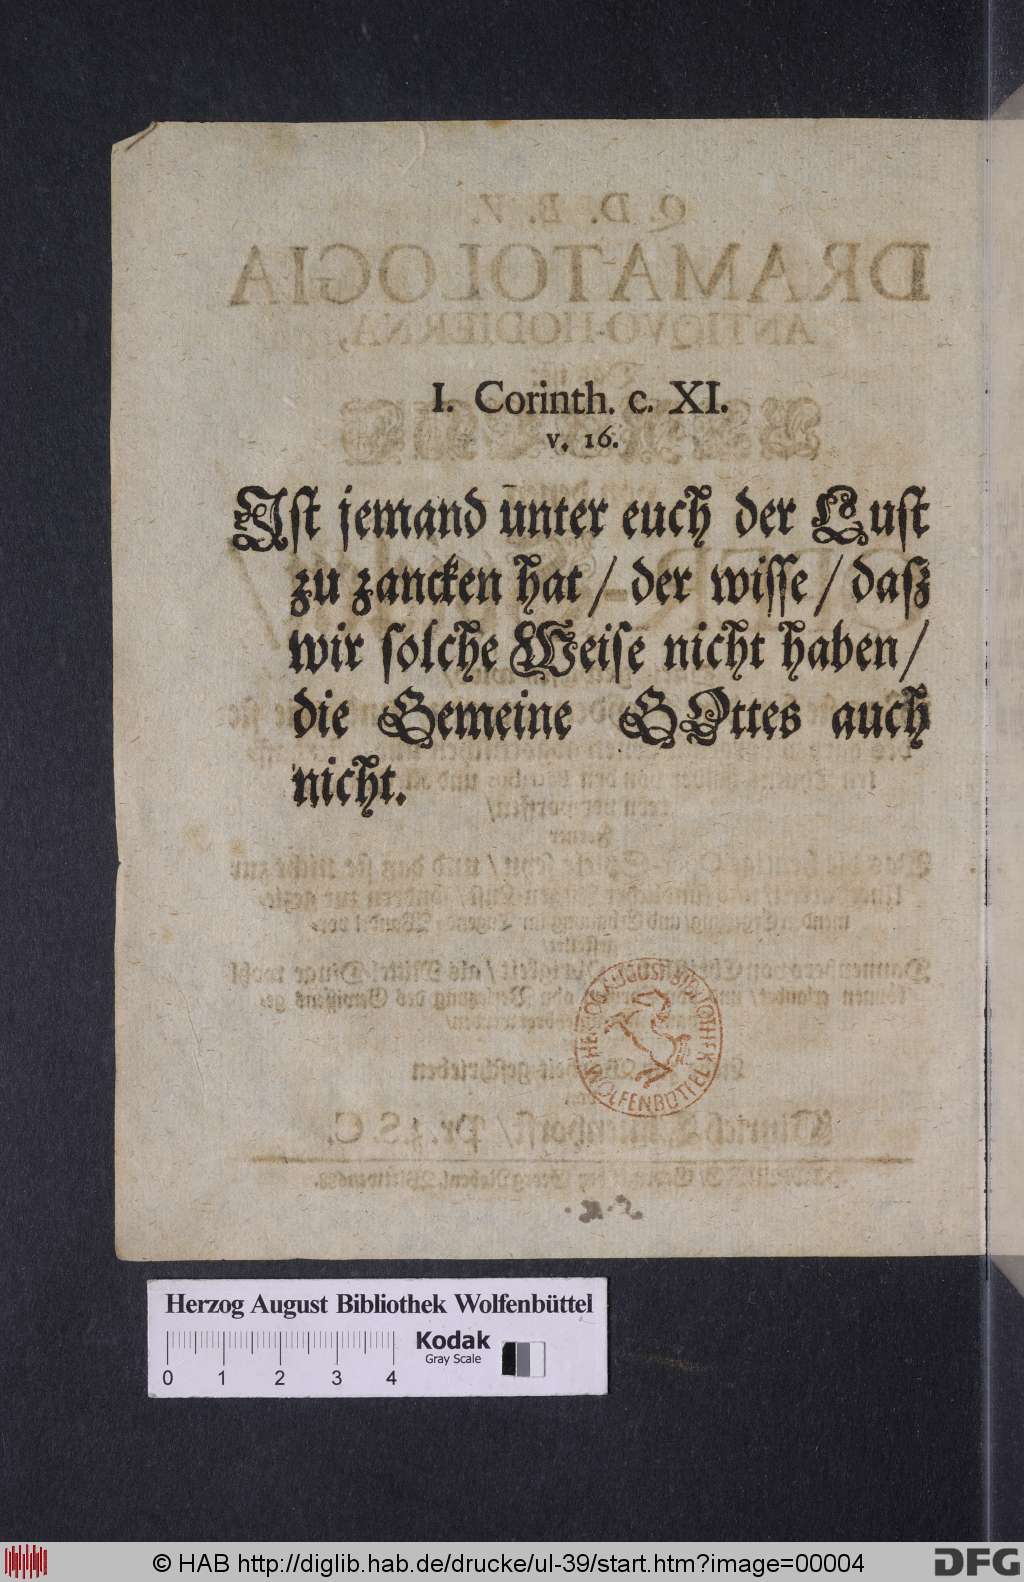 I. Corinth. c. XI.
v. 16.
Ist jemand unter euch der Lust
zu zancken hat / der wisse / daß
wir solche Weise nicht haben /
die Gemeine GOttes auch
nicht.
HERZOG AUGUST BIBLIOTHEK
WOLFENBÜTTEL
Herzog August Bibliothek Wolfenbüttel
Kodak
Gray Scale
0 1 2 3 4
© HAB http://diglib.hab.de/drucke/ul-39/start.htm?image=00004
DFG